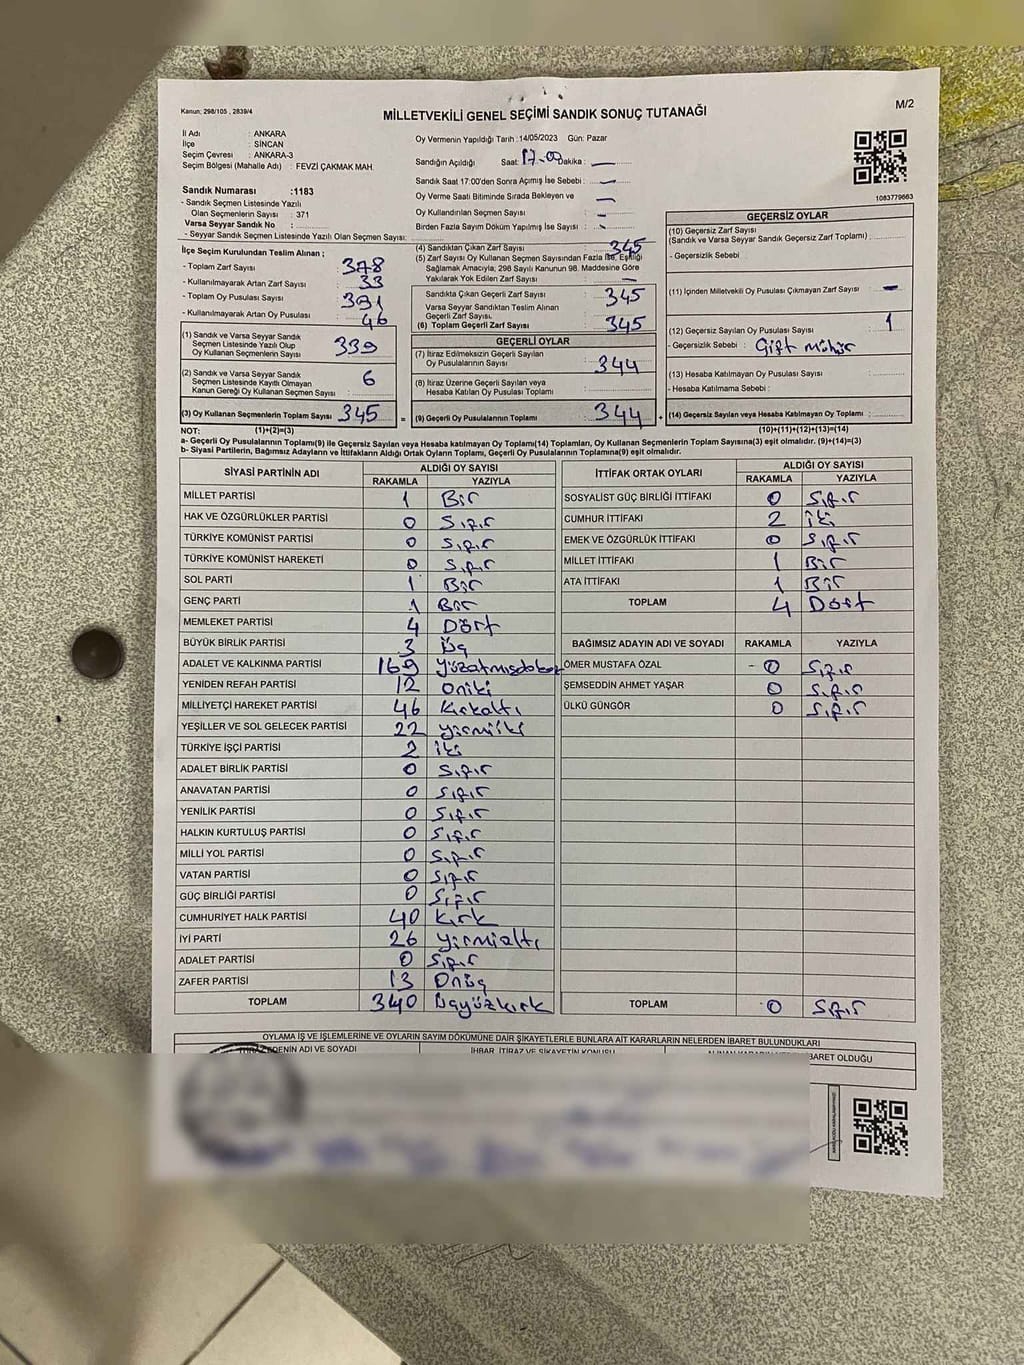 Kanun: 298/105 , 2839/4
MİLLETVEKİLİ GENEL SEÇİMİ SANDIK SONUÇ TUTANAĞI
M/2
İl Adı : ANKARA
İlçe : SİNCAN
Seçim Çevresi : ANKARA-3
Seçim Bölgesi (Mahalle Adı) : FEVZİ ÇAKMAK MAH.
Oy Vermenin Yapıldığı Tarih :14/05/2023 Gün: Pazar
Sandığın Açıldığı Saat: 17.00 Dakika : —
Sandık Saat 17:00'den Sonra Açımış İse Sebebi : —
Oy Verme Saati Bitiminde Sırada Bekleyen ve —
Oy Kullandırılan Seçmen Sayısı —
Birden Fazla Sayım Döküm Yapılmış İse Sayısı : —
1083779663
Sandık Numarası :1183
- Sandık Seçmen Listesinde Yazılı
Olan Seçmenlerin Sayısı : 371
Varsa Seyyar Sandık No :
- Seyyar Sandık Seçmen Listesinde Yazılı Olan Seçmen Sayısı:
İlçe Seçim Kurulundan Teslim Alınan ;
- Toplam Zarf Sayısı : 378
- Kullanılmayarak Artan Zarf Sayısı : 33
- Toplam Oy Pusulası Sayısı : 391
- Kullanılmayarak Artan Oy Pusulası : 46
(1) Sandık ve Varsa Seyyar Sandık
Seçmen Listesinde Yazılı Olup
Oy Kullanan Seçmenlerin Sayısı 339
(2) Sandık ve Varsa Seyyar Sandık
Seçmen Listesinde Kayıtlı Olmayan
Kanun Gereği Oy Kullanan Seçmen Sayısı 6
(3) Oy Kullanan Seçmenlerin Toplam Sayısı 345 =
(4) Sandıktan Çıkan Zarf Sayısı 345
(5) Zarf Sayısı Oy Kullanan Seçmen Sayısından Fazla İse, Eşitliği
Sağlamak Amacıyla; 298 Sayılı Kanunun 98. Maddesine Göre
Yakılarak Yok Edilen Zarf Sayısı : —
Sandıkta Çıkan Geçerli Zarf Sayısı 345
Varsa Seyyar Sandıktan Teslim Alınan
Geçerli Zarf Sayısı.
(6) Toplam Geçerli Zarf Sayısı 345
GEÇERLİ OYLAR
(7) İtiraz Edilmeksizin Geçerli Sayılan
Oy Pusulalarının Sayısı : 344
(8) İtiraz Üzerine Geçerli Sayılan veya
Hesaba Katılan Oy Pusulası Toplamı :
(9) Geçerli Oy Pusulalarının Toplamı 344 +
GEÇERSİZ OYLAR
(10) Geçersiz Zarf Sayısı
(Sandık ve Varsa Seyyar Sandık Geçersiz Zarf Toplamı) :
- Geçersizlik Sebebi
(11) İçinden Milletvekili Oy Pusulası Çıkmayan Zarf Sayısı : —
(12) Geçersiz Sayılan Oy Pusulası Sayısı 1
- Geçersizlik Sebebi : Çift Mühür
(13) Hesaba Katılmayan Oy Pusulası Sayısı
- Hesaba Katılmama Sebebi :
(14) Geçersiz Sayılan veya Hesaba Katılmayan Oy Toplamı :
NOT: (1)+(2)=(3) (10)+(11)+(12)+(13)=(14)
a- Geçerli Oy Pusulalarının Toplamı(9) ile Geçersiz Sayılan veya Hesaba katılmayan Oy Toplamı(14) Toplamları, Oy Kullanan Seçmenlerin Toplam Sayısına(3) eşit olmalıdır. (9)+(14)=(3)
b- Siyasi Partilerin, Bağımsız Adayların ve İttifakların Aldığı Ortak Oyların Toplamı, Geçerli Oy Pusulalarının Toplamına(9) eşit olmalıdır.
SİYASİ PARTİNİN ADI ALDIĞI OY SAYISI
RAKAMLA YAZIYLA
MİLLET PARTİSİ 1 Bir
HAK VE ÖZGÜRLÜKLER PARTİSİ 0 Sıfır
TÜRKİYE KOMÜNİST PARTİSİ 0 Sıfır
TÜRKİYE KOMÜNİST HAREKETİ 0 Sıfır
SOL PARTİ 1 Bir
GENÇ PARTİ 1 Bir
MEMLEKET PARTİSİ 4 Dört
BÜYÜK BİRLİK PARTİSİ 3 Üç
ADALET VE KALKINMA PARTİSİ 169 Yüzatmışdokuz
YENİDEN REFAH PARTİSİ 12 Oniki
MİLLİYETÇİ HAREKET PARTİSİ 46 Kırkaltı
YEŞİLLER VE SOL GELECEK PARTİSİ 22 Yirmiiki
TÜRKİYE İŞÇİ PARTİSİ 2 İki
ADALET BİRLİK PARTİSİ 0 Sıfır
ANAVATAN PARTİSİ 0 Sıfır
YENİLİK PARTİSİ 0 Sıfır
HALKIN KURTULUŞ PARTİSİ 0 Sıfır
MİLLİ YOL PARTİSİ 0 Sıfır
VATAN PARTİSİ 0 Sıfır
GÜÇ BİRLİĞİ PARTİSİ 0 Sıfır
CUMHURİYET HALK PARTİSİ 40 Kırk
İYİ PARTİ 26 Yirmialtı
ADALET PARTİSİ 0 Sıfır
ZAFER PARTİSİ 13 Onüç
TOPLAM 340 Üçyüzkırk
İTTİFAK ORTAK OYLARI ALDIĞI OY SAYISI
RAKAMLA YAZIYLA
SOSYALİST GÜÇ BİRLİĞİ İTTİFAKI 0 Sıfır
CUMHUR İTTİFAKI 2 İki
EMEK VE ÖZGÜRLÜK İTTİFAKI 0 Sıfır
MİLLET İTTİFAKI 1 Bir
ATA İTTİFAKI 1 Bir
TOPLAM 4 Dört
BAĞIMSIZ ADAYIN ADI VE SOYADI RAKAMLA YAZIYLA
ÖMER MUSTAFA ÖZAL - 0 Sıfır
ŞEMSEDDİN AHMET YAŞAR 0 Sıfır
ÜLKÜ GÜNGÖR 0 Sıfır
TOPLAM 0 Sıfır
OYLAMA İŞ VE İŞLEMLERİNE VE OYLARIN SAYIM DÖKÜMÜNE DAİR ŞİKAYETLERLE BUNLARA AİT KARARLARIN NELERDEN İBARET BULUNDUKLARI
ADI VE SOYADI İHBAR, İTİRAZ VE ŞİKAYETİN KONUSU İBARET OLDUĞU